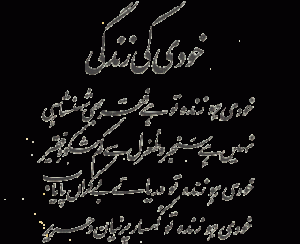 خودی کی زندگی
خودی ہو زندہ تو ہے فقر بھی شہنشاہی
نہیں ہے سنجر و طغرل سے کم شکوہ فقیر
خودی ہو زندہ تو دریائے بیکراں پایاب
خودی ہو زندہ تو کہسار پرنیان و حریر